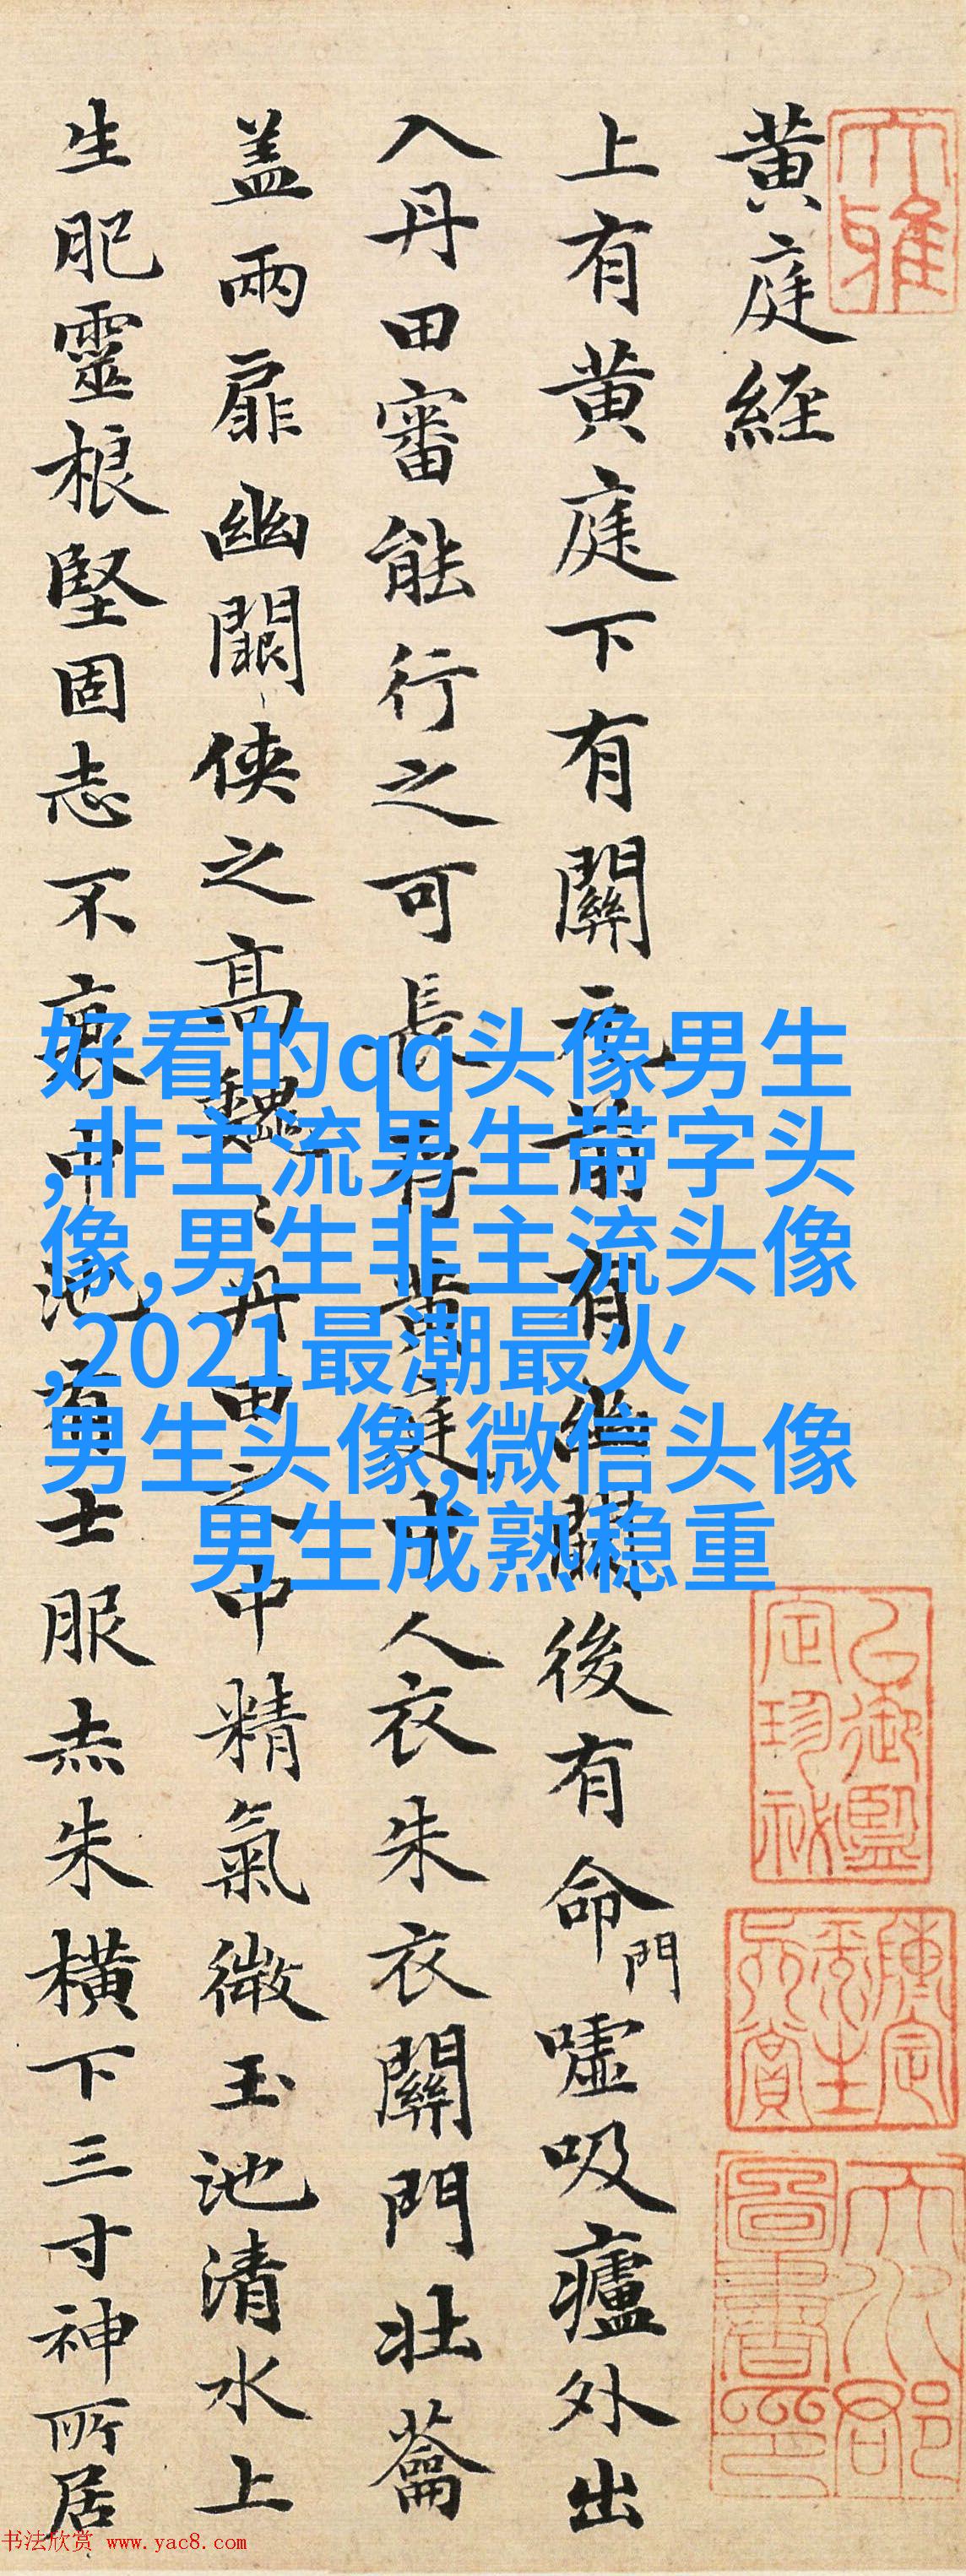 黄庭經
上有黄庭下有關元前有幽闕後有命門嘘吸廬外出
入丹田審能行之可長存黄庭中人衣朱衣關門壯蘥
盖兩扉幽闕俠之高魏魏丹田之中精氣微玉池清水上
生肥靈根堅固志不衰中池有士服赤朱横下三寸神所居
好看的qq头像男生
,非主流男生带字头
像,男生非主流头像
,2021最潮最火
男生头像,微信头像
男生成熟稳重
大雅
乙
御
監
定
珍
书法欣赏 www.yac8.com